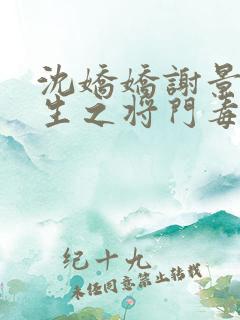 沈嬌嬌謝景
生之将門毒
纪十九
未经同意禁止转载